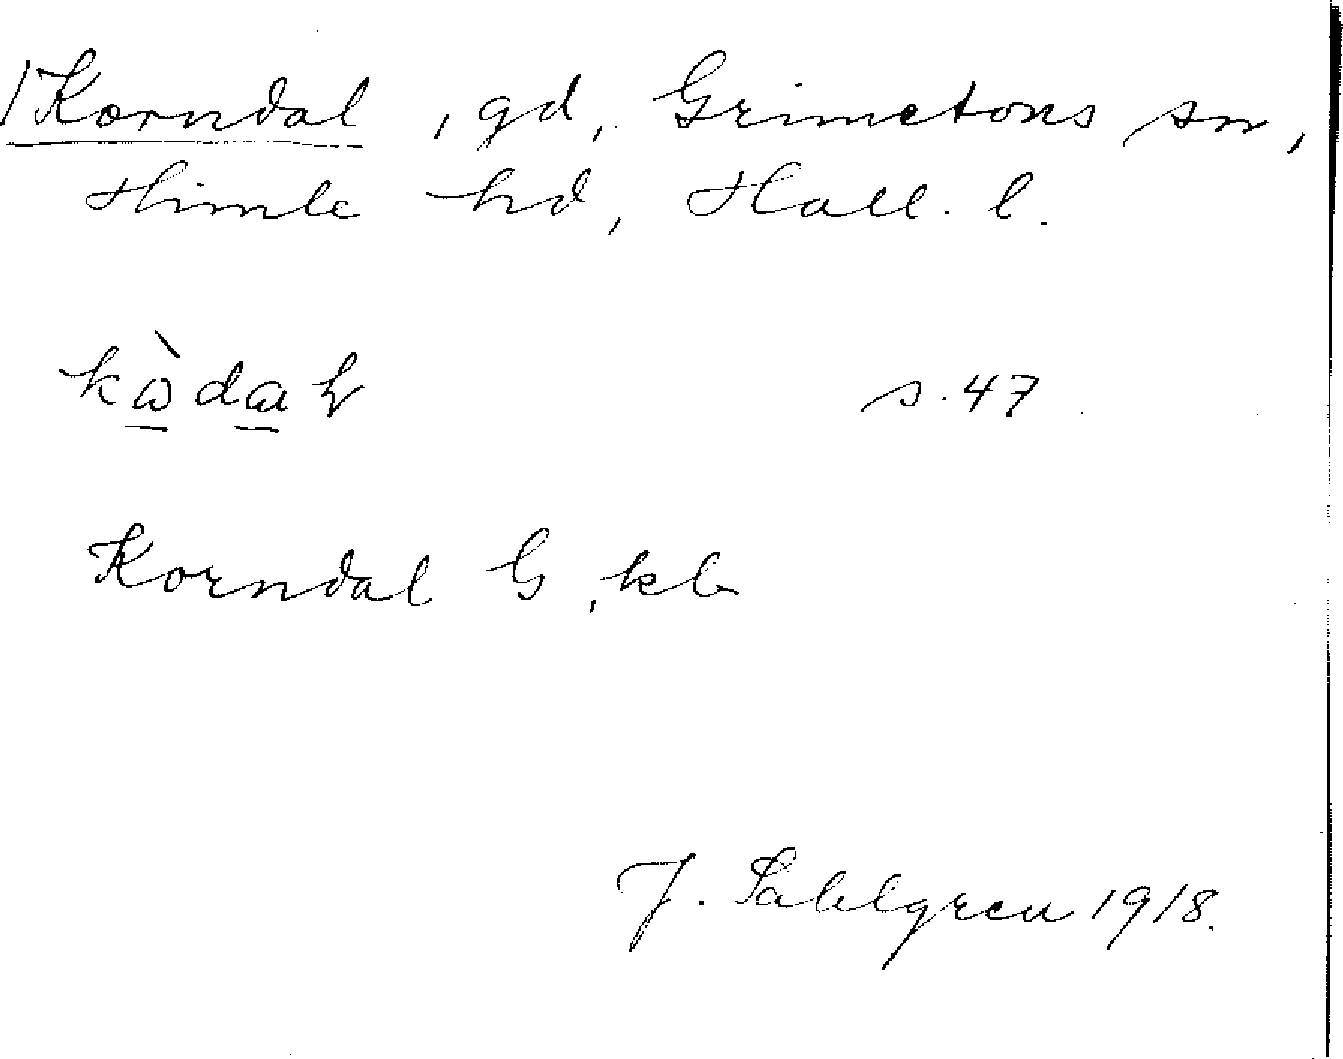 Korndal, gd, Grimetons sn,
Himle hd, Hall. l.
s. 47
Korndal G, kb
J. Sahlgren 1918.